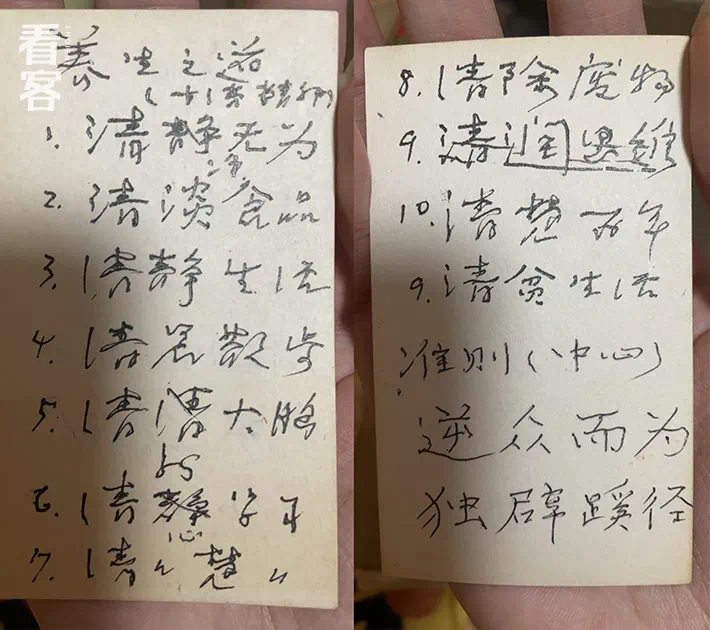 看客
养生之道
1. 清静无为
2. 清淡食品
3. 清静生活
4. 清晨散步
5. 清清大肠
6. 清静
心
7. 清〃楚〃
8. 清除废物
9. 清
10. 清楚百年
9. 清贫生活
准则(中心)
逆众而为
独辟蹊径